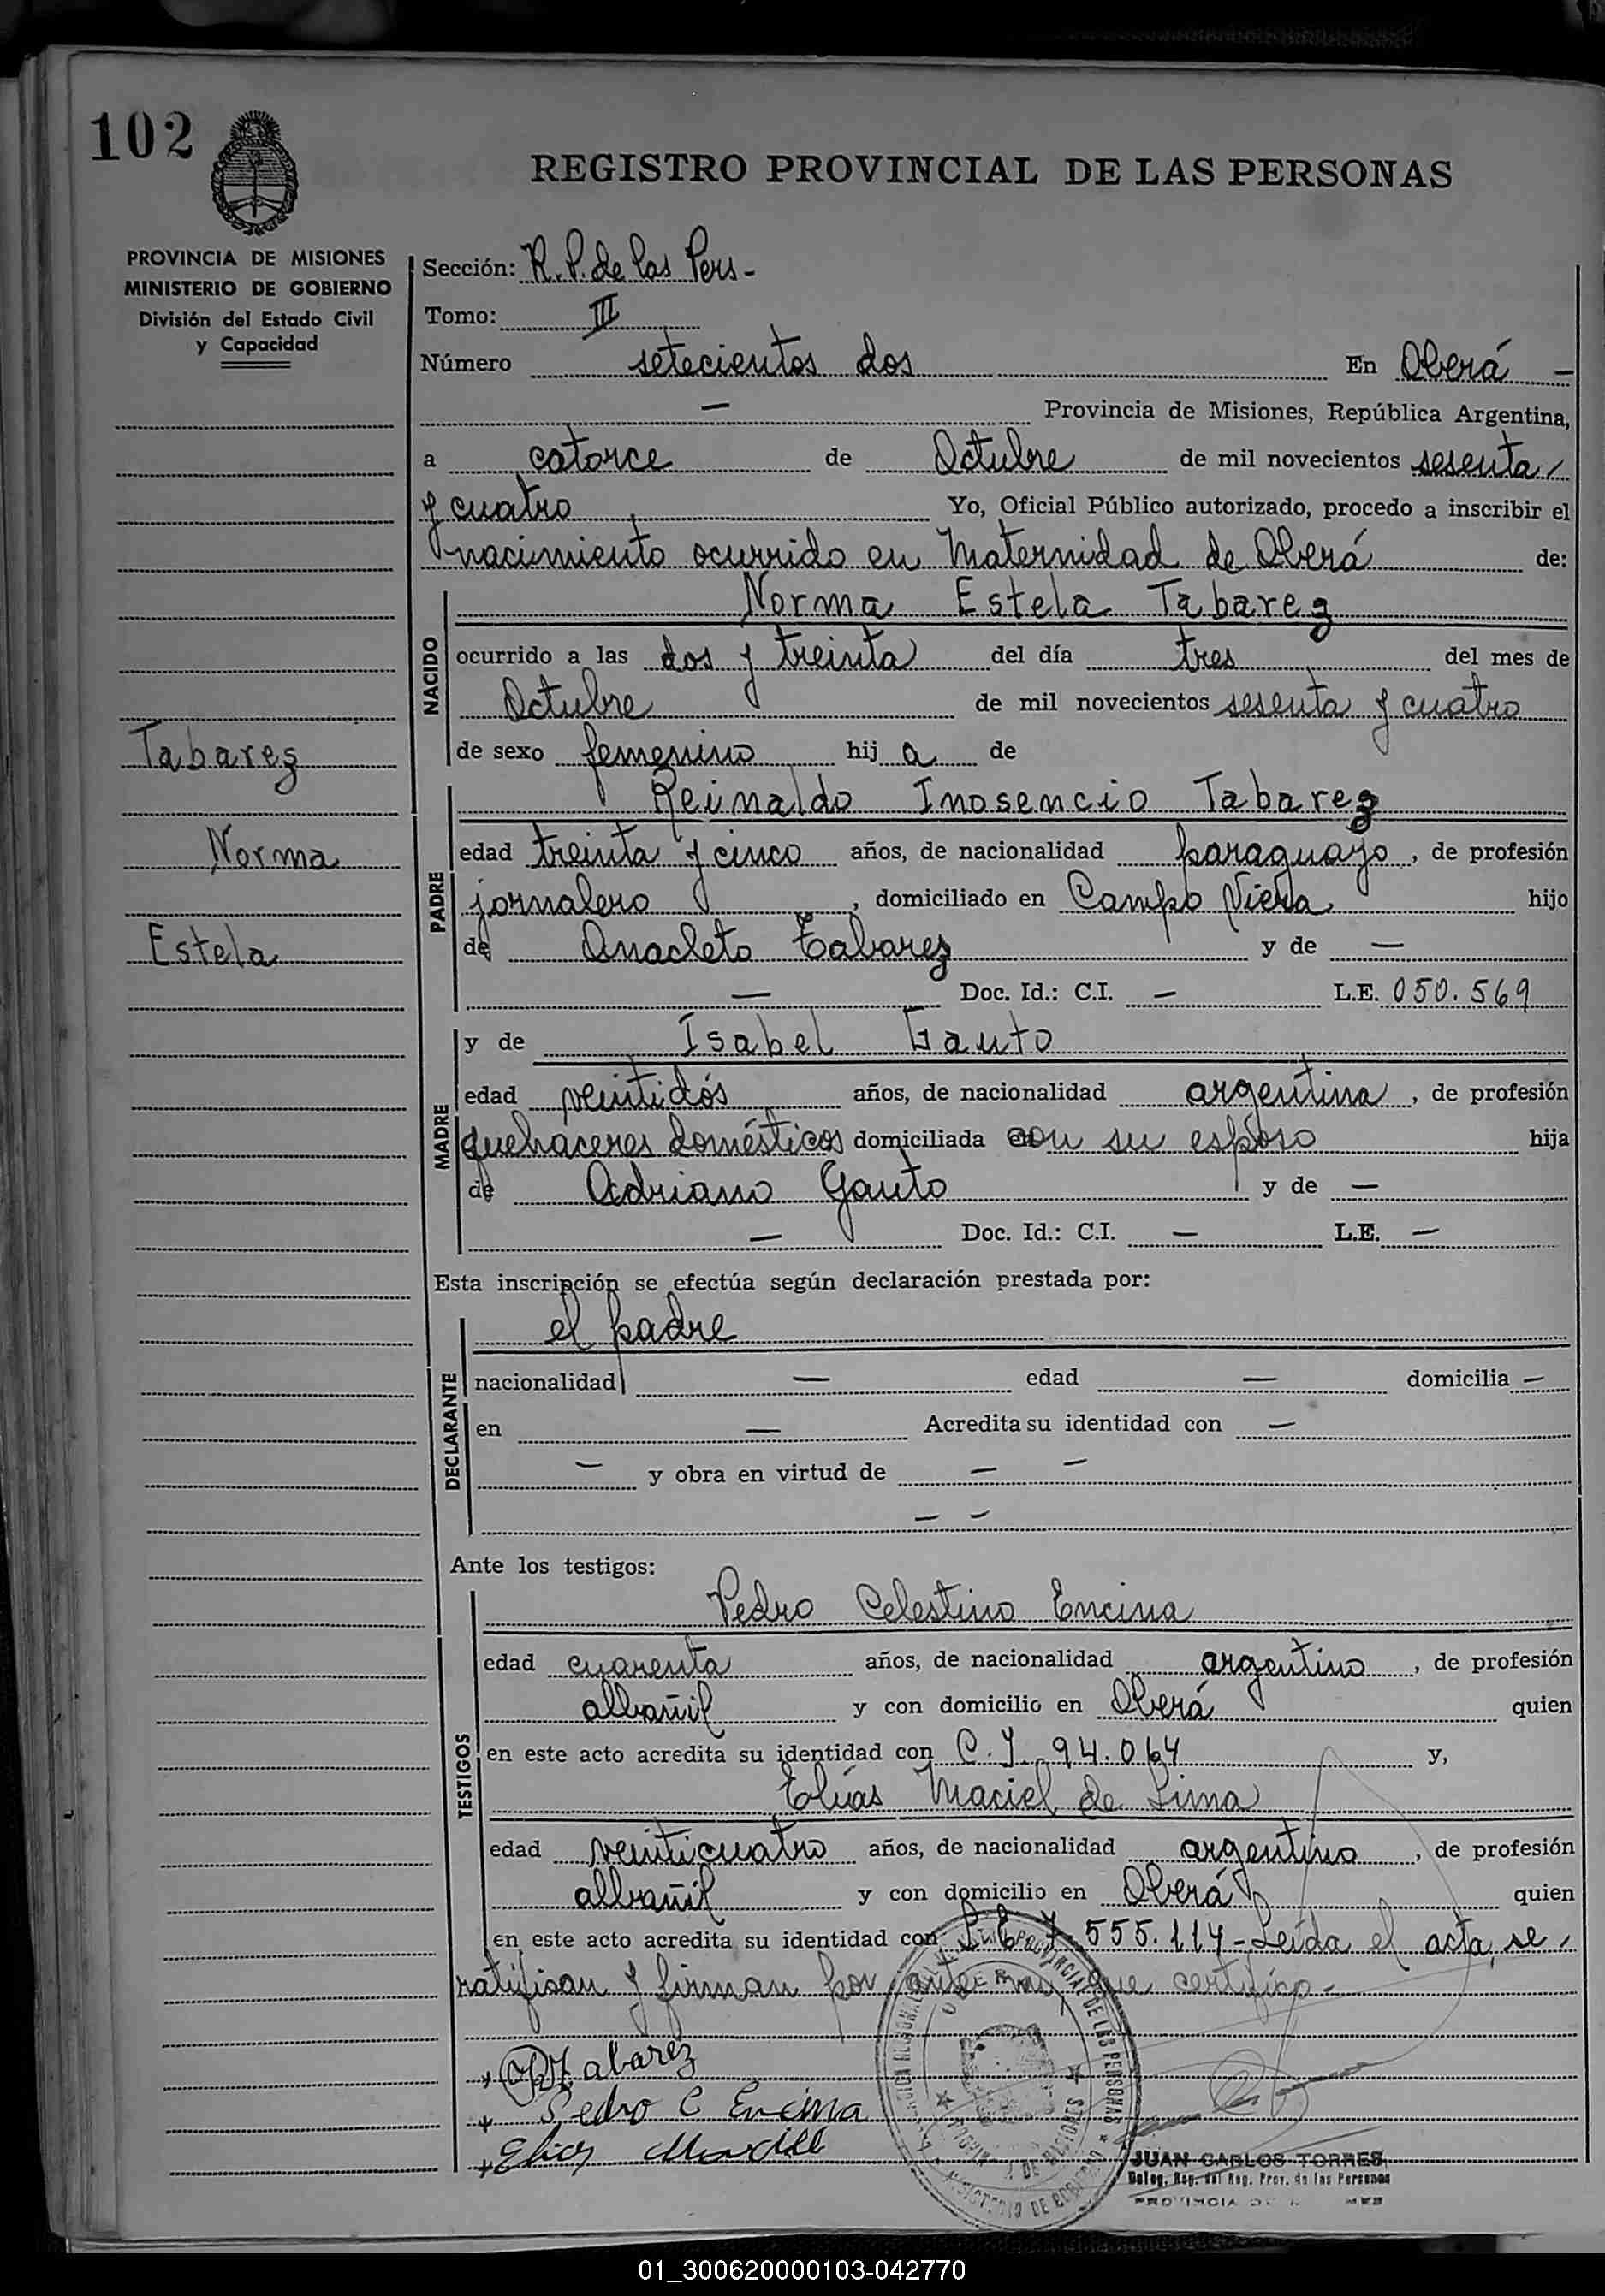 102
REGISTRO PROVINCIAL DE LAS PERSONAS
PROVINCIA DE MISIONES
MINISTERIO DE GOBIERNO
División del Estado Civil
y Capacidad
Sección: R. P. de las Pers -
Tomo: III
Número setecientos dos En Oberá -
- Provincia de Misiones, República Argentina,
a catorce de Octubre de mil novecientos sesenta
y cuatro Yo, Oficial Público autorizado, procedo a inscribir el
nacimiento ocurrido en Maternidad de Oberá de:
NACIDO
Norma Estela Tabarez
ocurrido a las dos y treinta del día tres del mes de
Octubre de mil novecientos sesenta y cuatro
de sexo femenino hij a de
Tabarez
Norma
Estela
PADRE
Reinaldo Inosencio Tabarez
edad treinta y cinco años, de nacionalidad paraguayo, de profesión
jornalero, domiciliado en Campo Viera hijo
de Anacleto Tabarez y de -
- Doc. Id.: C.I. - L.E. 050.569
MADRE
y de Isabel Gauto
edad veintidós años, de nacionalidad argentina, de profesión
quehaceres domésticos domiciliada con su esposo hija
de Adriano Gauto y de -
- Doc. Id.: C.I. - L.E. -
Esta inscripción se efectúa según declaración prestada por:
DECLARANTE
el padre
nacionalidad - edad - domicilia -
en - Acredita su identidad con -
- y obra en virtud de - -
- -
Ante los testigos:
TESTIGOS
Pedro Celestino Encina
edad cuarenta años, de nacionalidad argentino, de profesión
albañil y con domicilio en Oberá quien
en este acto acredita su identidad con C. I. 94.064 y,
Elías Maciel de Lima
edad veinticuatro años, de nacionalidad argentino, de profesión
albañil y con domicilio en Oberá quien
en este acto acredita su identidad con L. E. 7.555.114 - Leída el acta, se
ratifican y firman por ante mi, que certifico -
Tabarez
Pedro C Encina
Elias
JUAN CARLOS TORRES
Deleg. Reg. del Reg. Prov. de las Personas
PROVINCIA
01_300620000103-042770